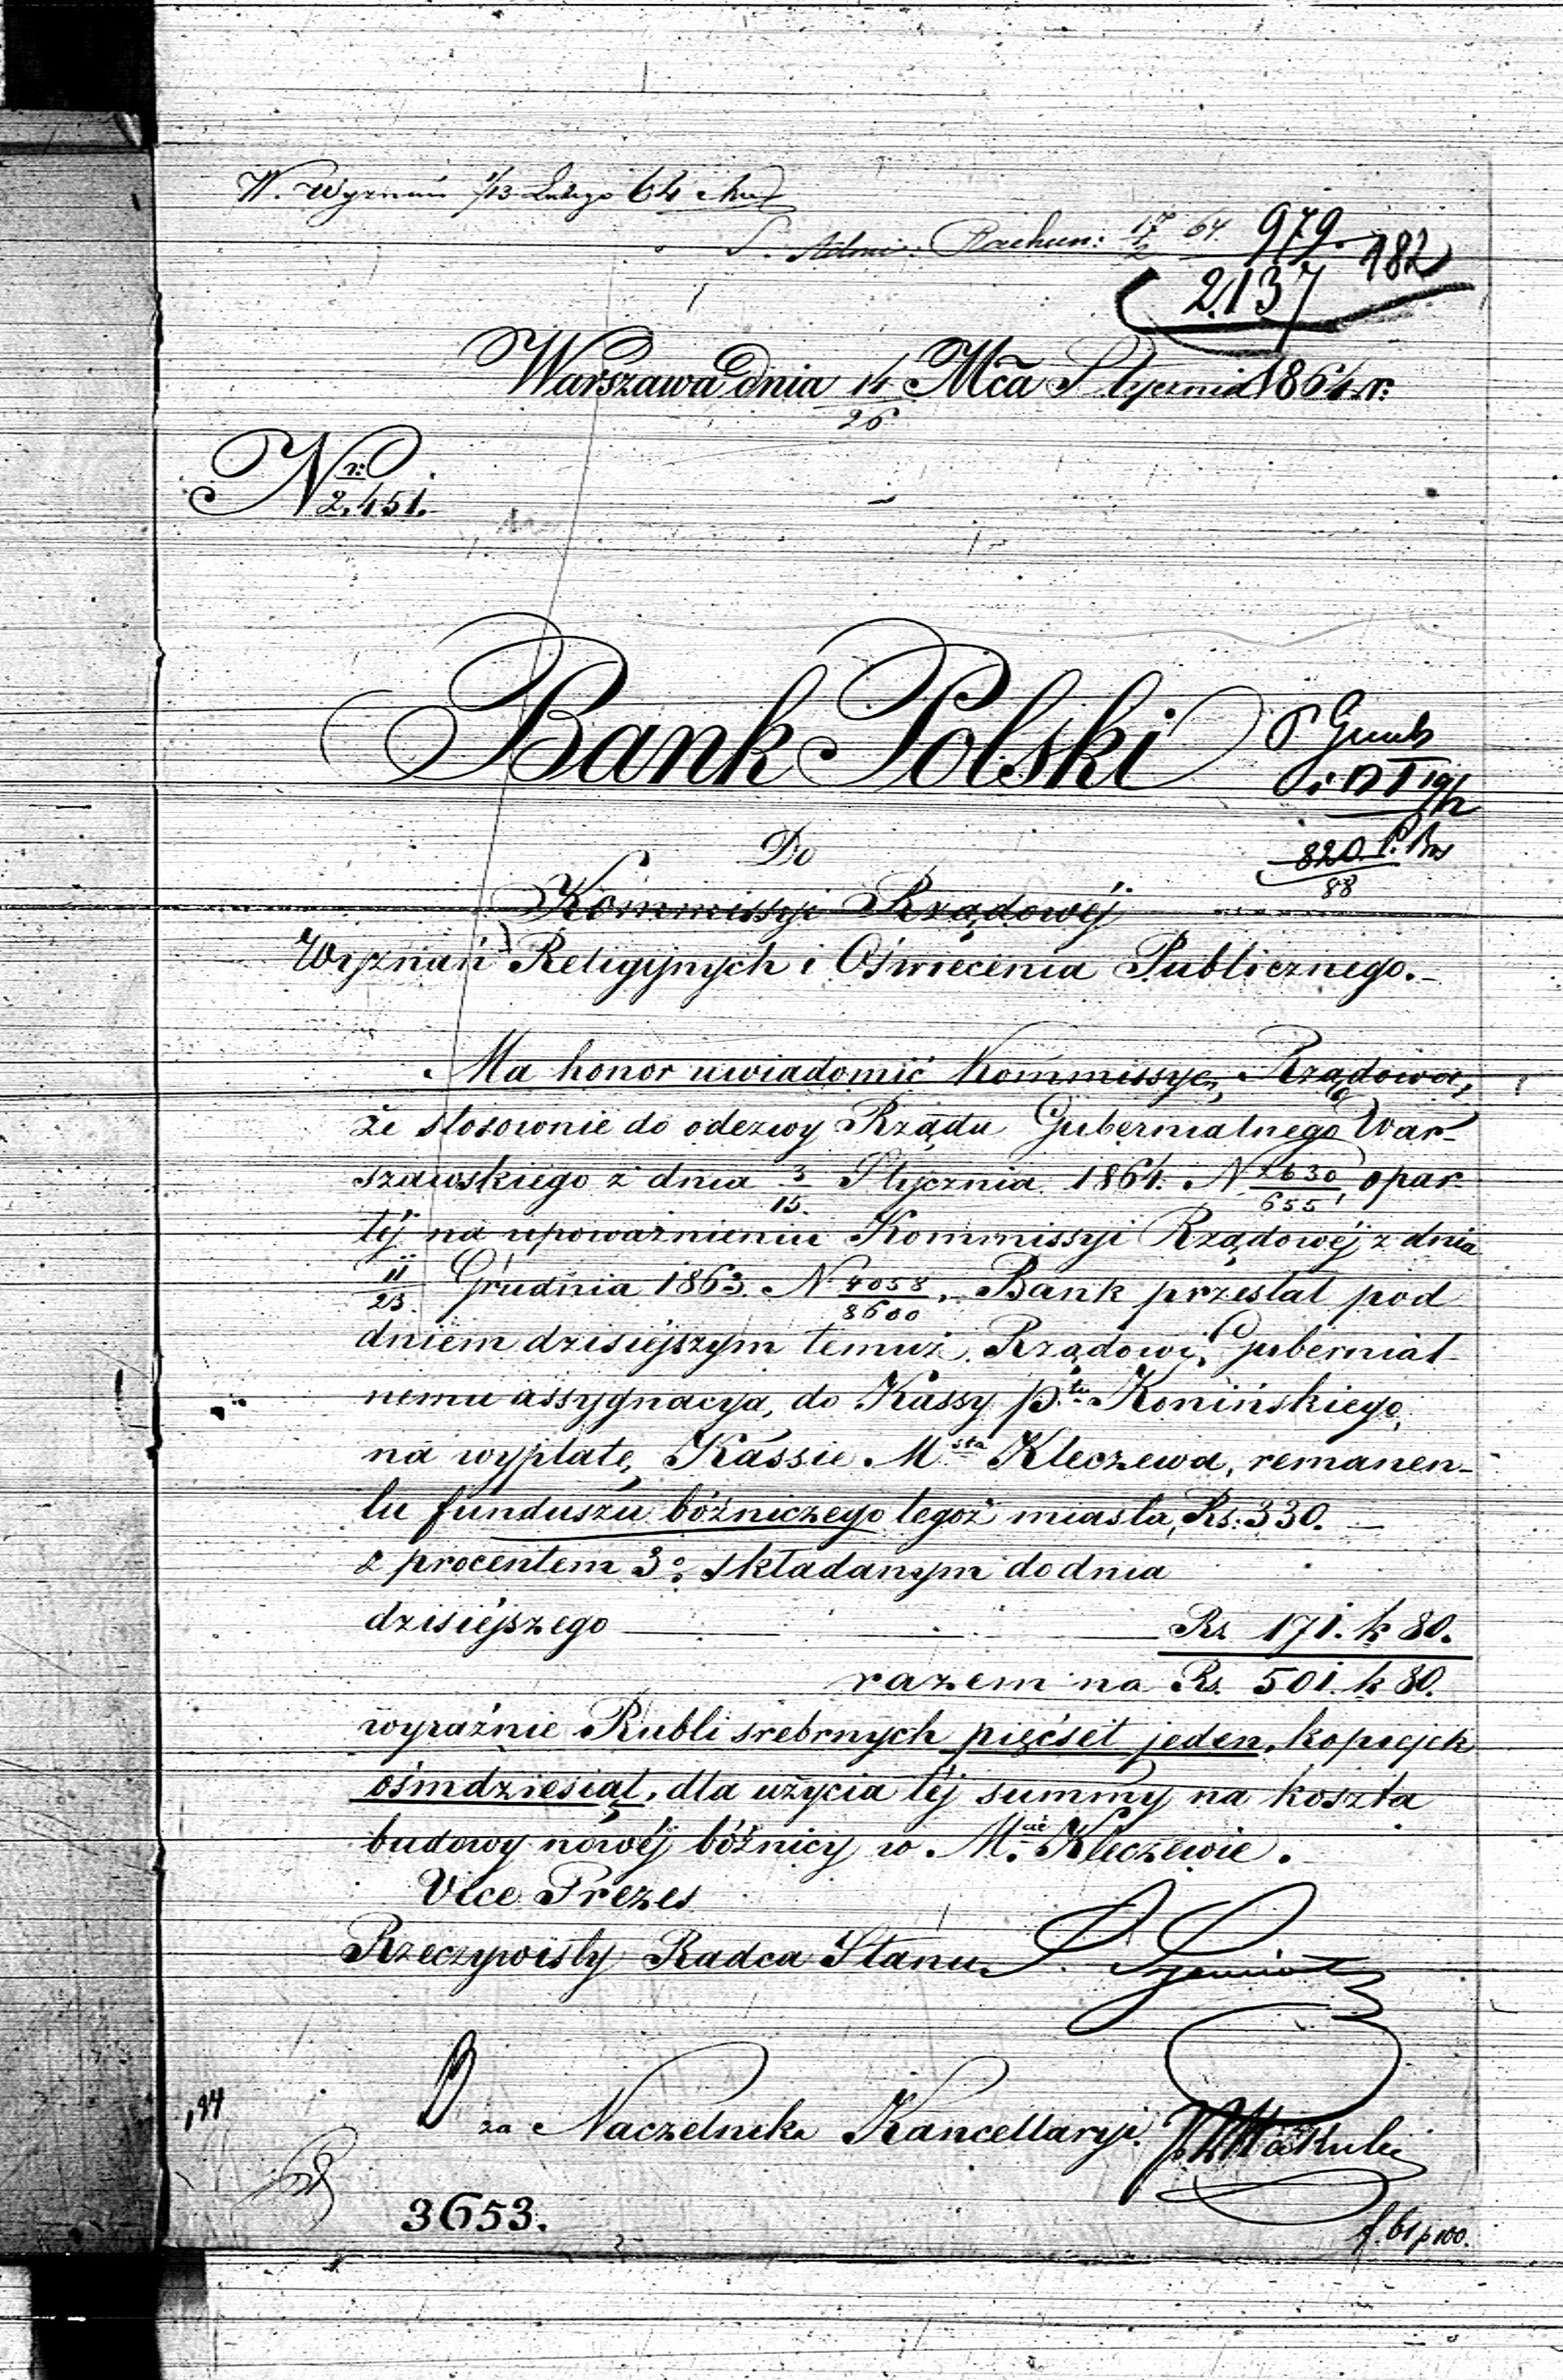 W. Wyznań 1/13 Lutego 64
S. Admi: Rachun: 17/2 64. 979. 182
2.137
Warszawa dnia 14/26 Mca Stycznia 1864 r:
Nr: 2,451.
Bank Polski
19/2
820
88
Do
Kommissyi Rządowéj
Wyznań Religijnych i Oświecenia Publicznego.
Ma honor uwiadomić Kommissyę Rządową,
że stosownie do odezwy Rządu Gubernialnego War-
szawskiego z dnia 3/15. Stycznia 1864. N 2630/655 opar-
téj na upoważnieniu Kommissyi Rządowéj z dnia
11/23. Grudnia 1863. N 4058/8600, Bank przesłał pod
dniem dzisiéjszym temuż Rządowi Gubernial-
nemu assygnacyą do Kassy ptu Konińskiego,
na wypłatę Kassie Msta Kleczewa, remanen-
tu funduszu bóżniczego tegoż miasta, Rs. 330.
z procentem 3% składanym do dnia
dzisiéjszego Rs 171. k 80.
razem na Rs. 501. k 80.
wyraźnie Rubli srebrnych pięćset jeden, kopiejek
ośmdziesiąt, dla użycia téj summy na koszta
budowy nowéj bóżnicy w Mcie Kleczewie.
Vice Prezes
Rzeczywisty Radca Stanu
za Naczelnika Kancellaryi
3653.
f. 61 p 100.